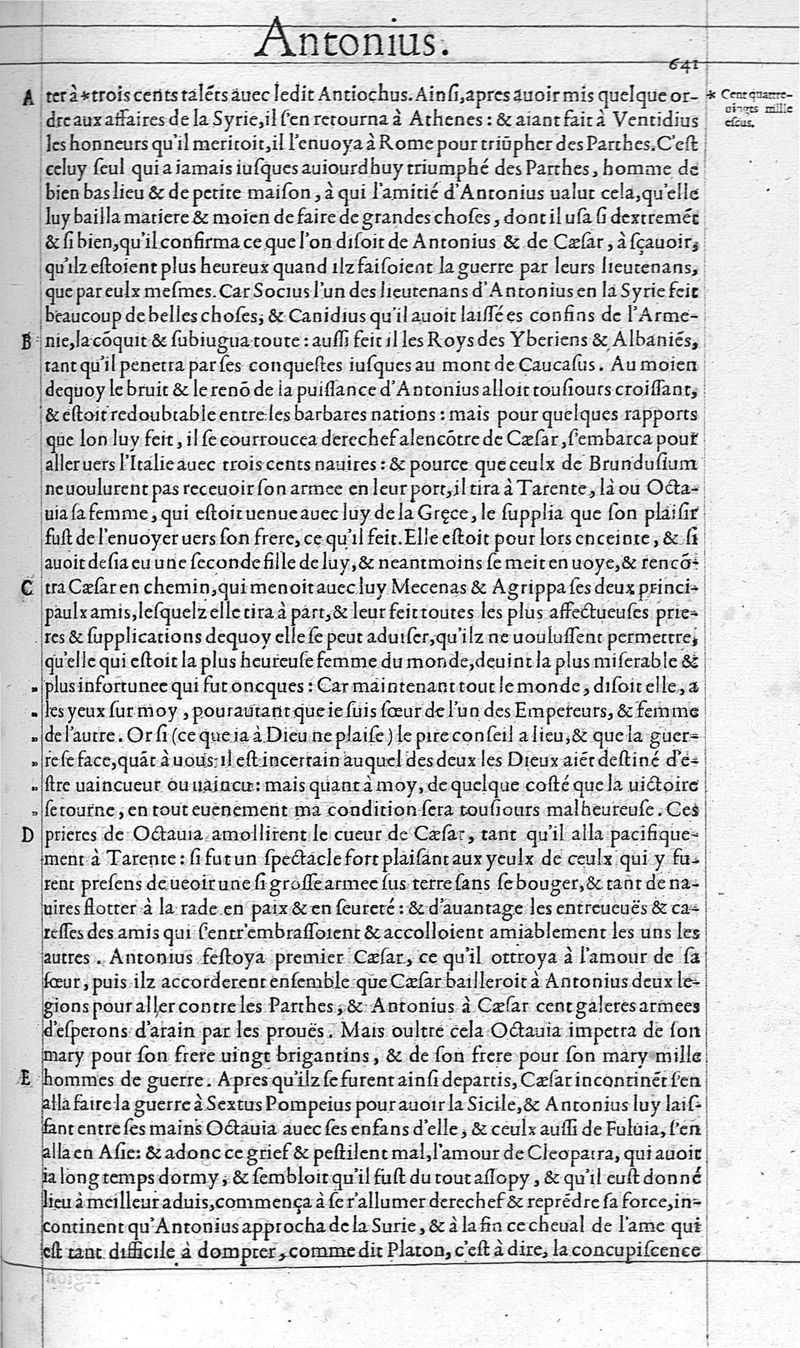 Antonius.
641
A
ter à *trois cents talẽts auec ledit Antiochus. Ainſi, apres auoir mis quelque or-
* Cent quatre-
uingts mille
eſcus.
dre aux affaires de la Syrie, il ſ'en retourna à Athenes : & aiant fait à Ventidius
les honneurs qu'il meritoit, il l'enuoya à Rome pour triũpher des Parthes. C'eſt
celuy ſeul qui a iamais iuſques auiourdhuy triumphé des Parthes, homme de
bien bas lieu & de petite maiſon, à qui l'amitié d'Antonius ualut cela, qu'elle
luy bailla matiere & moien de faire de grandes choſes, dont il uſa ſi dextremẽt
& ſi bien, qu'il confirma ce que l'on diſoit de Antonius & de Cæſar, à ſçauoir,
qu'ilz eſtoient plus heureux quand ilz faiſoient la guerre par leurs lieutenans,
que par eulx meſmes. Car Socius l'un des lieutenans d'Antonius en la Syrie feit
beaucoup de belles choſes, & Canidius qu'il auoit laiſſé es confins de l'Arme-
B
nie, la cõquit & ſubiugua toute : auſſi feit il les Roys des Yberiens & Albaniẽs,
tant qu'il penetra par ſes conqueſtes iuſques au mont de Caucaſus. Au moien
dequoy le bruit & le renõ de la puiſſance d'Antonius alloit touſiours croiſſant,
& eſtoit redoubtable entre les barbares nations : mais pour quelques rapports
que lon luy feit, il ſe courroucea derechef alencõtre de Cæſar, ſ'embarca pour
aller uers l'Italie auec trois cents nauires : & pource que ceulx de Brunduſium
ne uoulurent pas receuoir ſon armee en leur port, il tira à Tarente, là ou Octa-
uia ſa femme, qui eſtoit uenue auec luy de la Gręce, le ſupplia que ſon plaiſir
fuſt de l'enuoyer uers ſon frere, ce qu'il feit. Elle eſtoit pour lors enceinte, & ſi
auoit deſia eu une ſeconde fille de luy, & neantmoins ſe meit en uoye, & rencõ-
C
tra Cæſar en chemin, qui menoit auec luy Mecenas & Agrippa ſes deux princi-
paulx amis, leſquelz elle tira à part, & leur feit toutes les plus affectueuſes prie-
res & ſupplications dequoy elle ſe peut aduiſer, qu'ilz ne uouluſſent permettre,
qu'elle qui eſtoit la plus heureuſe femme du monde, deuint la plus miſerable &
„ plus infortunee qui fut oncques : Car maintenant tout le monde, diſoit elle, a
„ les yeux ſur moy, pourautant que ie ſuis ſœur de l'un des Empereurs, & femme
„ de l'autre. Or ſi (ce que ia à Dieu ne plaiſe) le pire conſeil a lieu, & que la guer-
„ re ſe face, quãt à uous il eſt incertain auquel des deux les Dieux aiẽt deſtiné d'e-
„ ſtre uaincueur ou uaincu : mais quant à moy, de quelque coſté que la uictoire
„ ſe tourne, en tout euenement ma condition ſera touſiours malheureuſe. Ces
D
prieres de Octauia amollirent le cueur de Cæſar, tant qu'il alla pacifique-
ment à Tarente : ſi fut un ſpectacle fort plaiſant aux yeulx de ceulx qui y fu-
rent preſens de ueoir une ſi groſſe armee ſus terre ſans ſe bouger, & tant de na-
uires flotter à la rade en paix & en ſeureté : & d'auantage les entreueuës & ca-
reſſes des amis qui ſ'entr'embraſſoient & accolloient amiablement les uns les
autres . Antonius feſtoya premier Cæſar, ce qu'il ottroya à l'amour de ſa
ſœur, puis ilz accorderent enſemble que Cæſar bailleroit à Antonius deux le-
gions pour aller contre les Parthes, & Antonius à Cæſar cent galeres armees
d'eſperons d'arain par les prouës. Mais oultre cela Octauia impetra de ſon
mary pour ſon frere uingt brigantins, & de ſon frere pour ſon mary mille
E
hommes de guerre. Apres qu'ilz ſe furent ainſi departis, Cæſar incontinẽt ſ'en
alla faire la guerre à Sextus Pompeius pour auoir la Sicile, & Antonius luy laiſ-
ſant entre ſes mains Octauia auec ſes enfans d'elle, & ceulx auſſi de Fuluia, ſ'en
alla en Aſie : & adonc ce grief & peſtilent mal, l'amour de Cleopatra, qui auoit
ia long temps dormy, & ſembloit qu'il fuſt du tout aſſopy, & qu'il euſt donné
lieu à meilleur aduis, commença à ſe r'allumer derechef & reprẽdre ſa force, in-
continent qu'Antonius approcha de la Surie, & à la fin ce cheual de l'ame qui
eſt tant difficile à dompter, comme dit Platon, c'eſt à dire, la concupiſcence